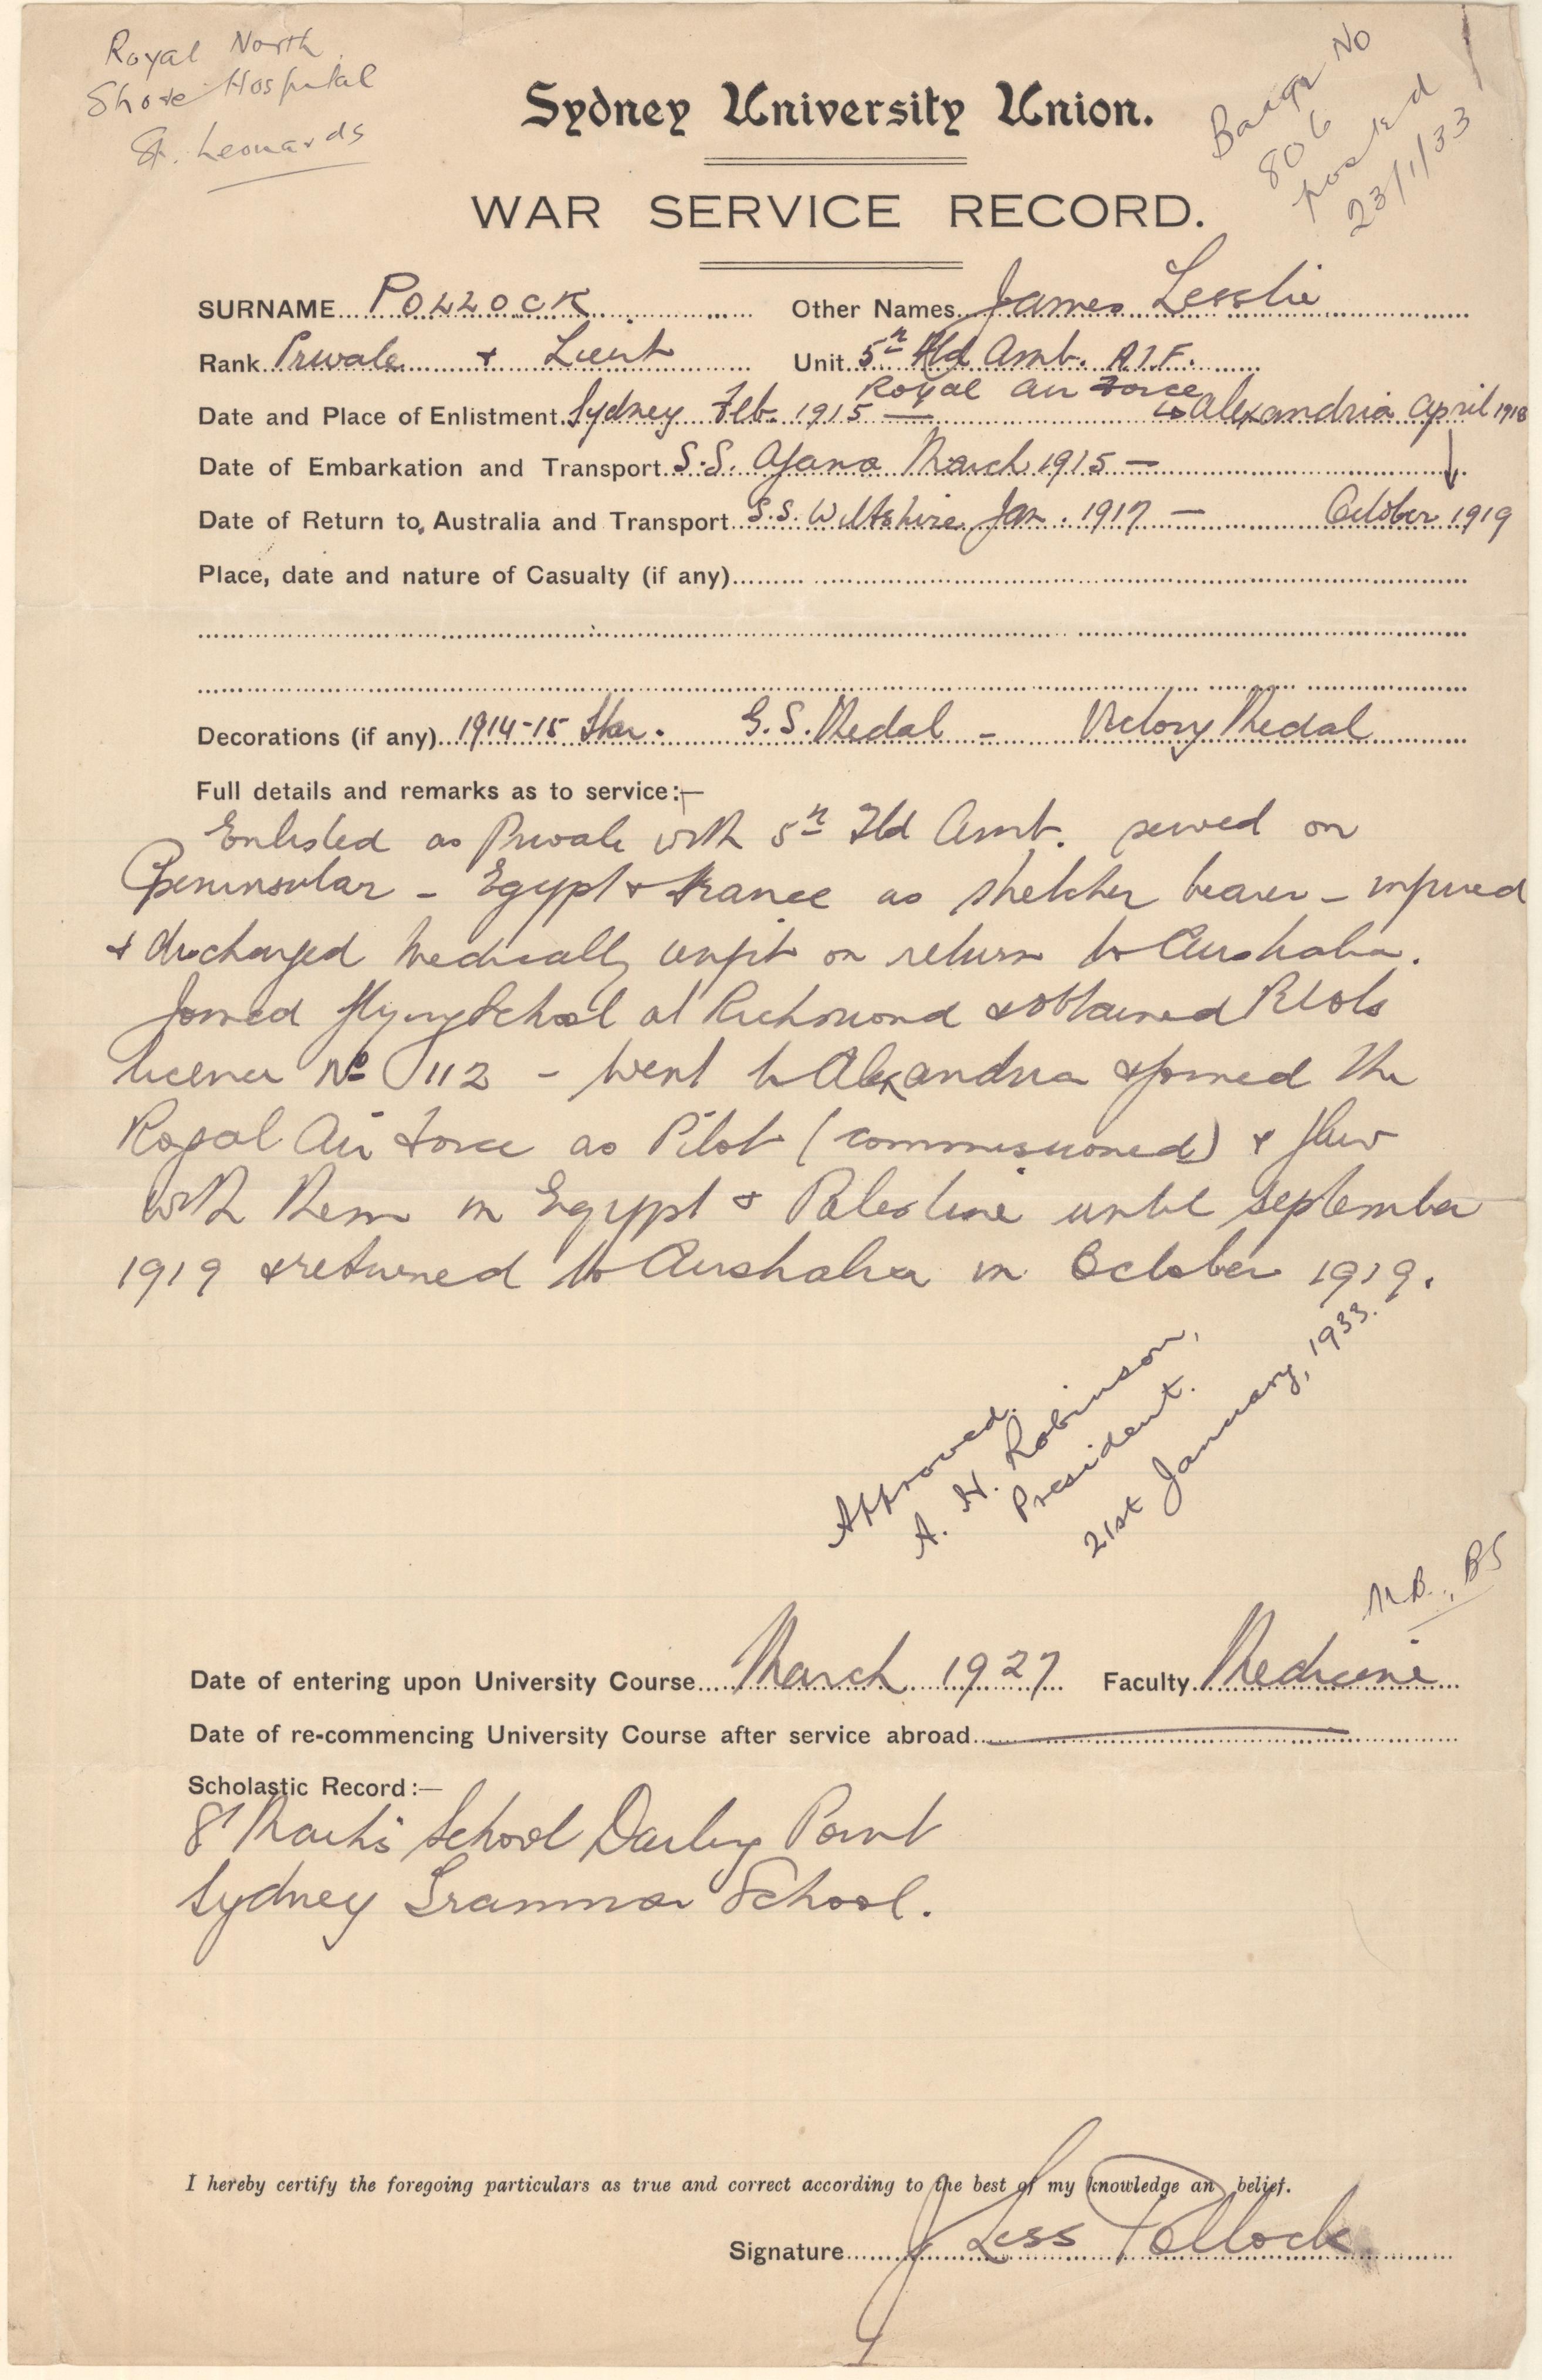 Royal North
Shore Hospital
St. Leonards
Badge No
806
posted
23/1/33
Sydney University Union.
WAR SERVICE RECORD.
SURNAME Pollock Other Names James Lesslie
Rank Private + Lieut Unit 5th Fld Amb. A.I.F.
Royal Air Force
Date and Place of Enlistment Sydney Feb. 1915 — Alexandria April 1918
Date of Embarkation and Transport S.S. Ajana March 1915 —
Date of Return to Australia and Transport S.S. Wiltshire Jan. 1917 — October 1919
Place, date and nature of Casualty (if any)
Decorations (if any) 1914-15 Star. G.S. Medal - Victory Medal
Full details and remarks as to service:—
Enlisted as Private with 5th Fld Amb. served on
Peninsular - Egypt + France as stretcher bearer - injured
+ discharged medically unfit on return to Australia.
Joined flying School at Richmond + obtained Pilots
licence No 112 - went to Alexandria + joined the
Royal Air Force as Pilot (commissioned) + flew
with them in Egypt + Palestine until September
1919 + returned to Australia in October 1919.
Approved.
A. H. Robinson,
President.
21st January, 1933.
M.B., BS
Date of entering upon University Course March 1927 Faculty Medicine
Date of re-commencing University Course after service abroad —
Scholastic Record:—
St Mark's School Darling Point
Sydney Grammar School.
I hereby certify the foregoing particulars as true and correct according to the best of my knowledge an belief.
Signature J Less Pollock